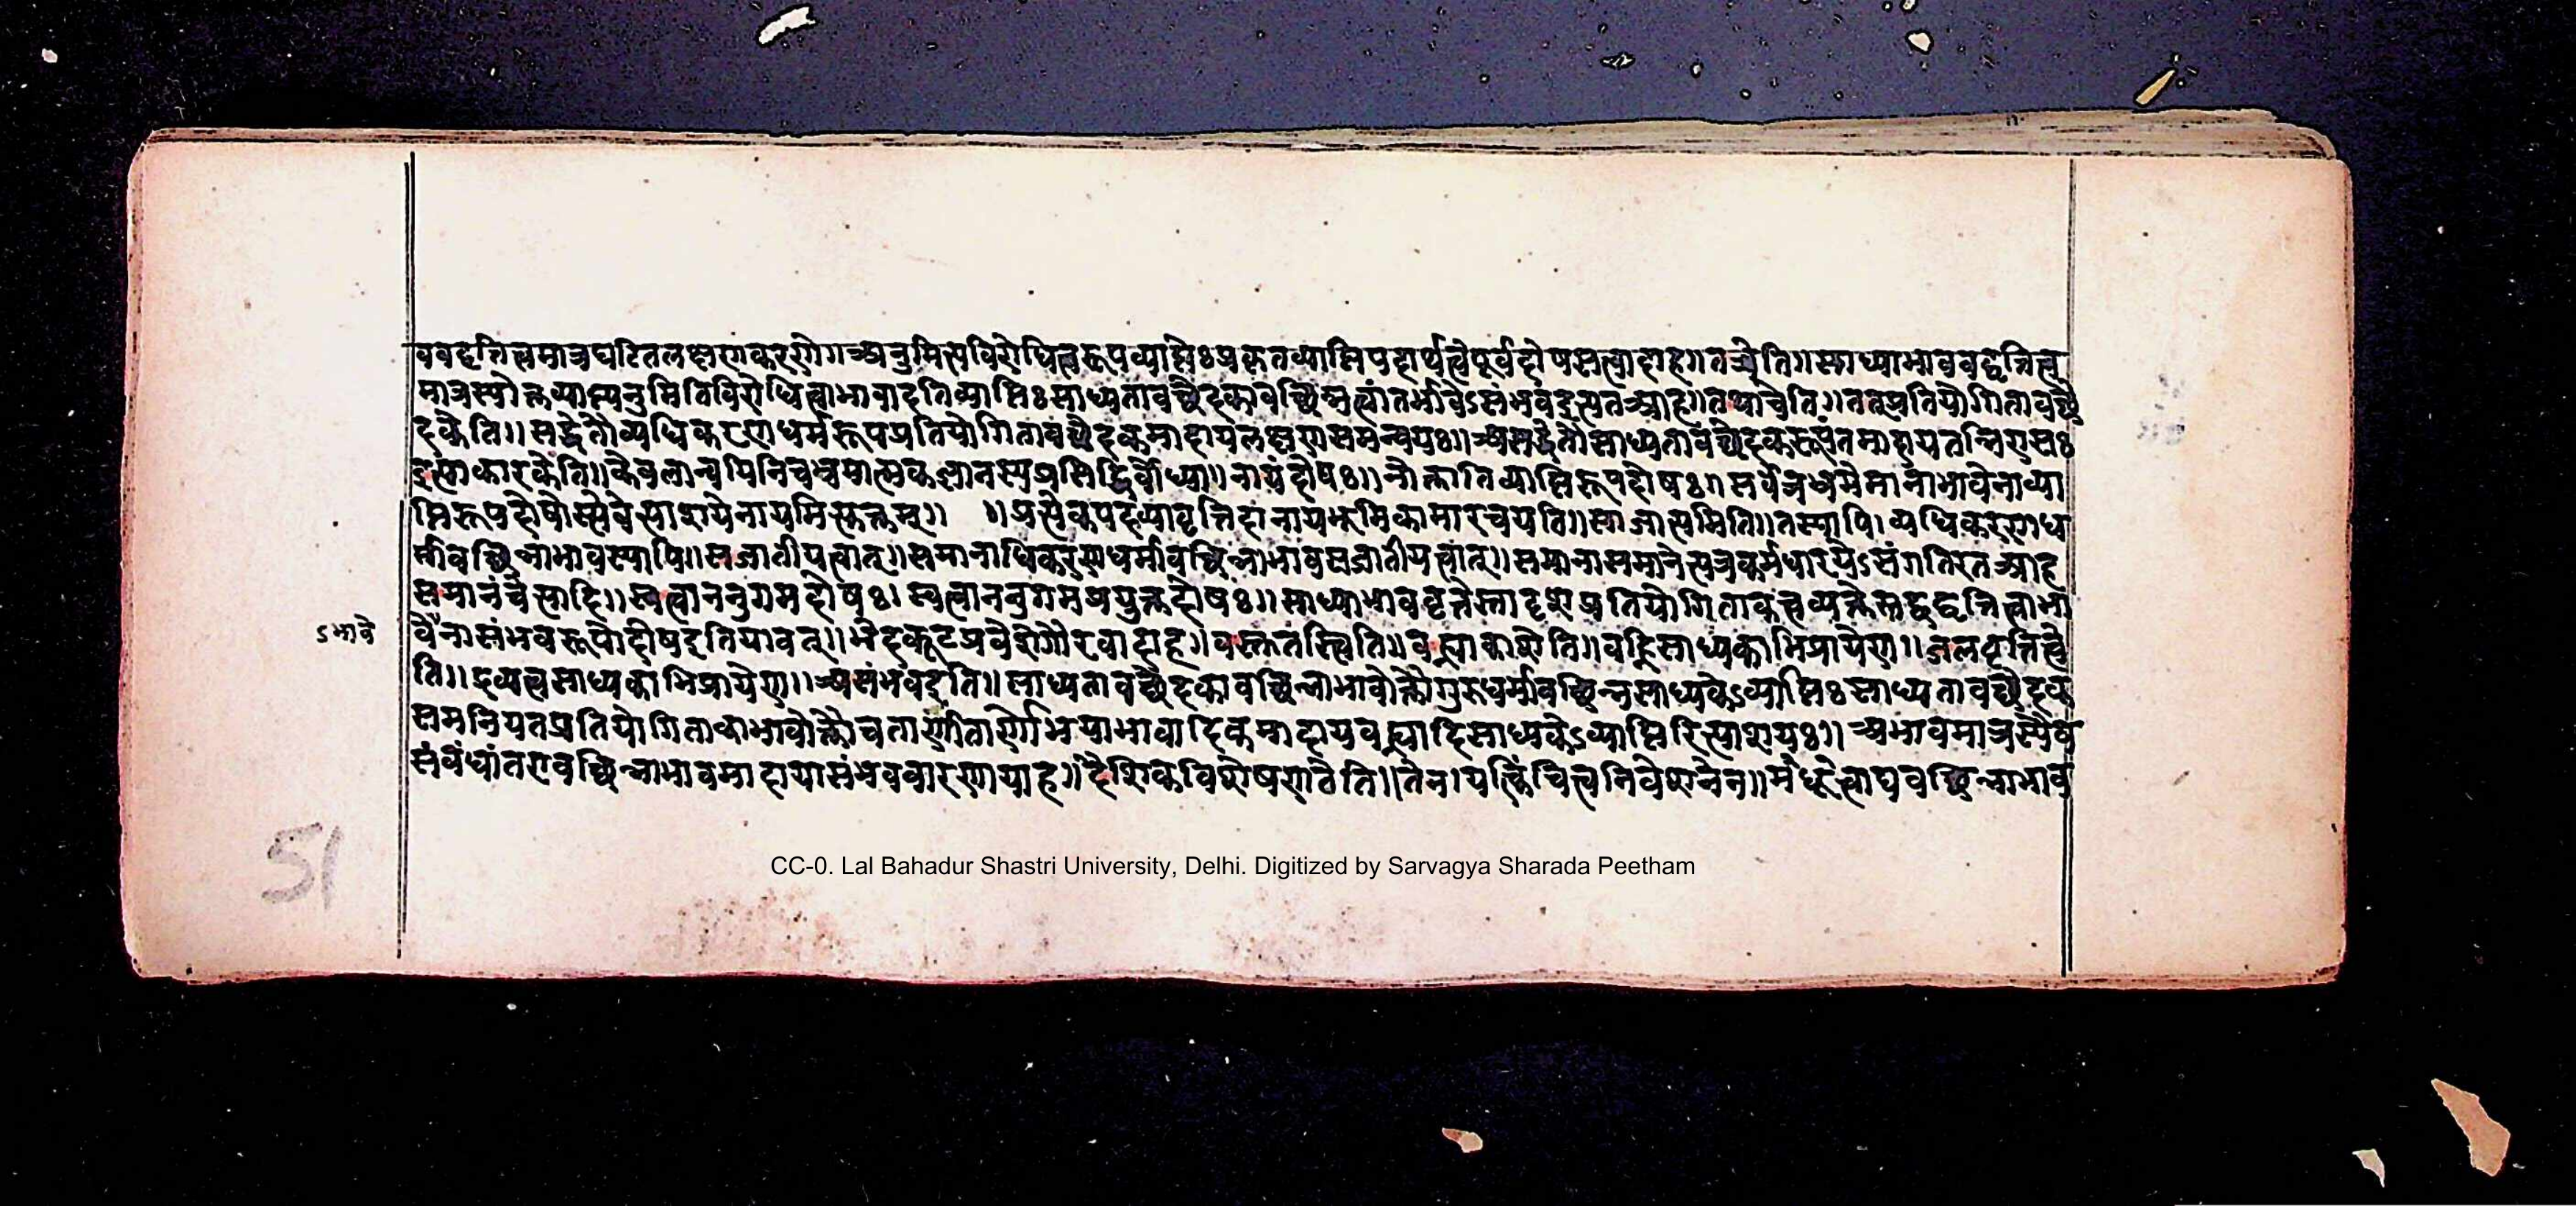 ववद्वृत्तित्वमात्रघटितलक्षणकरणे।।अनुमित्यविरोधित्वरूपव्याप्तेः प्रकृतव्याप्तिपदार्थत्वे पूर्वदोषसत्वादाह।।तत्रेति।।साध्याभाववद्वृत्तित्व
मात्रस्योक्तव्याप्त्यनुमितिविरोधित्वाभावादतिव्याप्तिः साध्यतावच्छेदकावच्छिन्नत्वांतर्भावेऽसंभवइत्यत आह।।तथाचेति।।तत्प्रतियोगितावच्छे
दकेति।।सद्धेतौव्यधिकरणधर्मरूपप्रतियोगितावच्छेदकमादायलक्षणसमन्वयः।।असद्धेतौसाध्यतावच्छेदकरूपंतमादायतन्निरासः
इत्याकारकेति।।केवलान्वयिनि भ्रमात्मकज्ञानस्यप्रसिद्धिर्बोध्या।।नायंदोषः।।नोक्तातिव्याप्तिरूपदोषः।। सर्वत्र नाव्या
प्तिरूपदोषोस्त्येवेत्याशयेनायमित्युक्तम्।। ।।प्रत्येकपदव्यावृत्तिदानायभूमिकामारचयति।।साजात्यमिति।।तस्यापि।व्यधिकरणध
र्मावच्छिन्नाभावस्यापि।।सजातीयत्वात्।।समानाधिकरणधर्मावच्छिन्नाभावसजातीयत्वात्।।समानासमानेत्यत्रकर्मधारयेऽसंगतिरतआह
समानंचेत्यादि।।स्वत्वाननुगमदोषः।स्वत्वाननुगमप्रयुक्तदोषः।।साध्याभाववृत्तेस्तादृशप्रतियोगिताकत्वव्यक्तेस्तद्वद्वृत्तित्वाभा
ऽभावे
वेनासंभवरूपोदोषइतियावत्।।भेदकूटप्रवेशेगौरवादाह।।वस्तुतस्त्विति।।वह्न्याकाशेति।।वह्निसाध्यकाभिप्रायेण।।जलवृत्तित्वे
ति।।द्रव्यत्वसाध्यकाभिप्रायेण।।असंभवइति।।साध्यतावच्छेदकावच्छिन्नाभावोक्तौगुरुधर्मावच्छिन्नसाध्यकेऽव्याप्तिः साध्यतावच्छेदक
समनियतप्रतियोगिताकाभावोक्तौच भयाभावादिकमादायवह्न्यादिसाध्यकेऽव्याप्तिरित्याशयः।।अभावमात्रस्यैव
संबंधांतरावच्छिन्नाभावमादायासंभववारणायाह।।दैशिकविशेषणतेति।।तेन।यत्किंचित्त्वनिवेशनेन।। वच्छिन्नाभाव
51
CC-0. Lal Bahadur Shastri University, Delhi. Digitized by Sarvagya Sharada Peetham